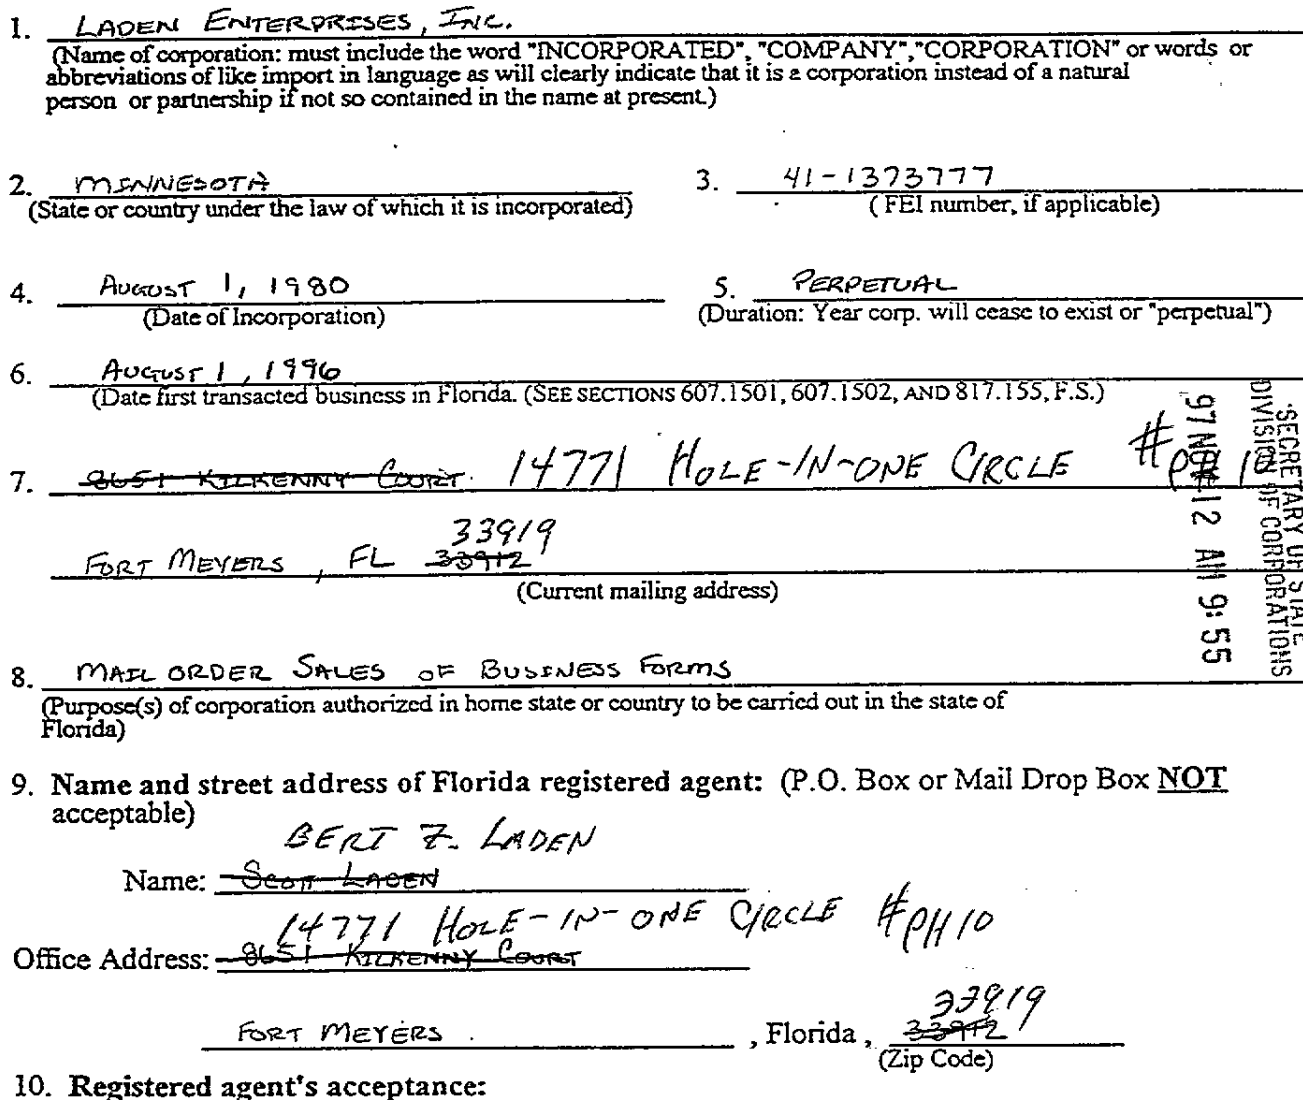 1. LADEN ENTERPRISES, INC.
(Name of corporation: must include the word "INCORPORATED", "COMPANY","CORPORATION" or words or
abbreviations of like import in language as will clearly indicate that it is a corporation instead of a natural
person or partnership if not so contained in the name at present.)
2. MINNESOTA
(State or country under the law of which it is incorporated)
3. 41-1373777
( FEI number, if applicable)
4. AUGUST 1, 1980
(Date of Incorporation)
5. PERPETUAL
(Duration: Year corp. will cease to exist or "perpetual")
6. AUGUST 1, 1996
(Date first transacted business in Florida. (SEE SECTIONS 607.1501, 607.1502, AND 817.155, F.S.)
7. 8651 KILKENNY COURT. 14771 HOLE-IN-ONE CIRCLE #PH 10
33919
FORT MEYERS, FL 33912
(Current mailing address)
SECRETARY OF STATE
DIVISION OF CORPORATIONS
97 NOV 12 AM 9:55
8. MAIL ORDER SALES OF BUSINESS FORMS
(Purpose(s) of corporation authorized in home state or country to be carried out in the state of
Florida)
9. Name and street address of Florida registered agent: (P.O. Box or Mail Drop Box NOT
acceptable)
BERT Z. LADEN
Name: SCOTT LADEN
14771 HOLE-IN-ONE CIRCLE #PH 10
Office Address: 8651 KILKENNY COURT
33919
FORT MEYERS , Florida , 33912
(Zip Code)
10. Registered agent's acceptance: